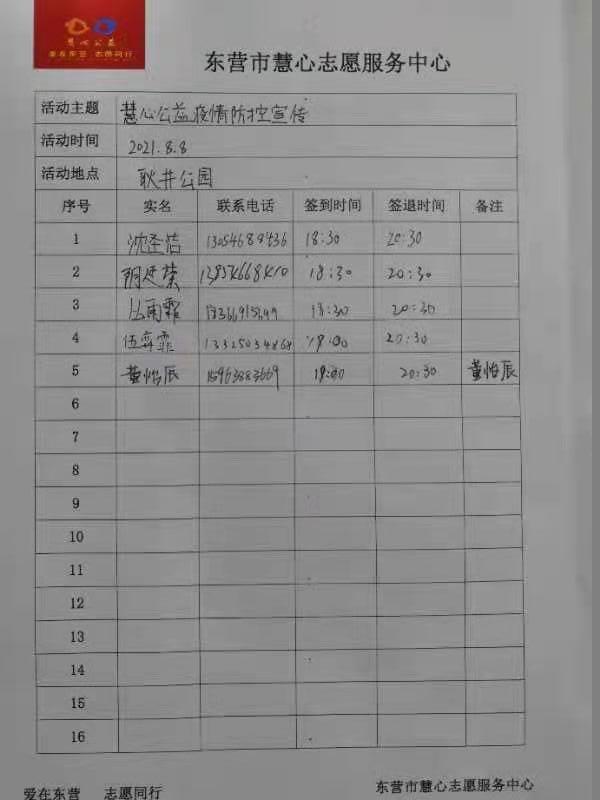 慧心公益
爱在东营 志愿同行
东营市慧心志愿服务中心
活动主题 慧心公益疫情防控宣传
活动时间 2021.8.8
活动地点 耿井公园
序号 实名 联系电话 签到时间 签退时间 备注
1 沈圣洁 13054689436 18:30 20:30
2 18:30 20:30
3 丛雨霏 18:30 20:30
4 伍霏 20:30
5 黄怡辰 15963883669 20:30 黄怡辰
6
7
8
9
10
11
12
13
14
15
16
爱在东营 志愿同行 东营市慧心志愿服务中心